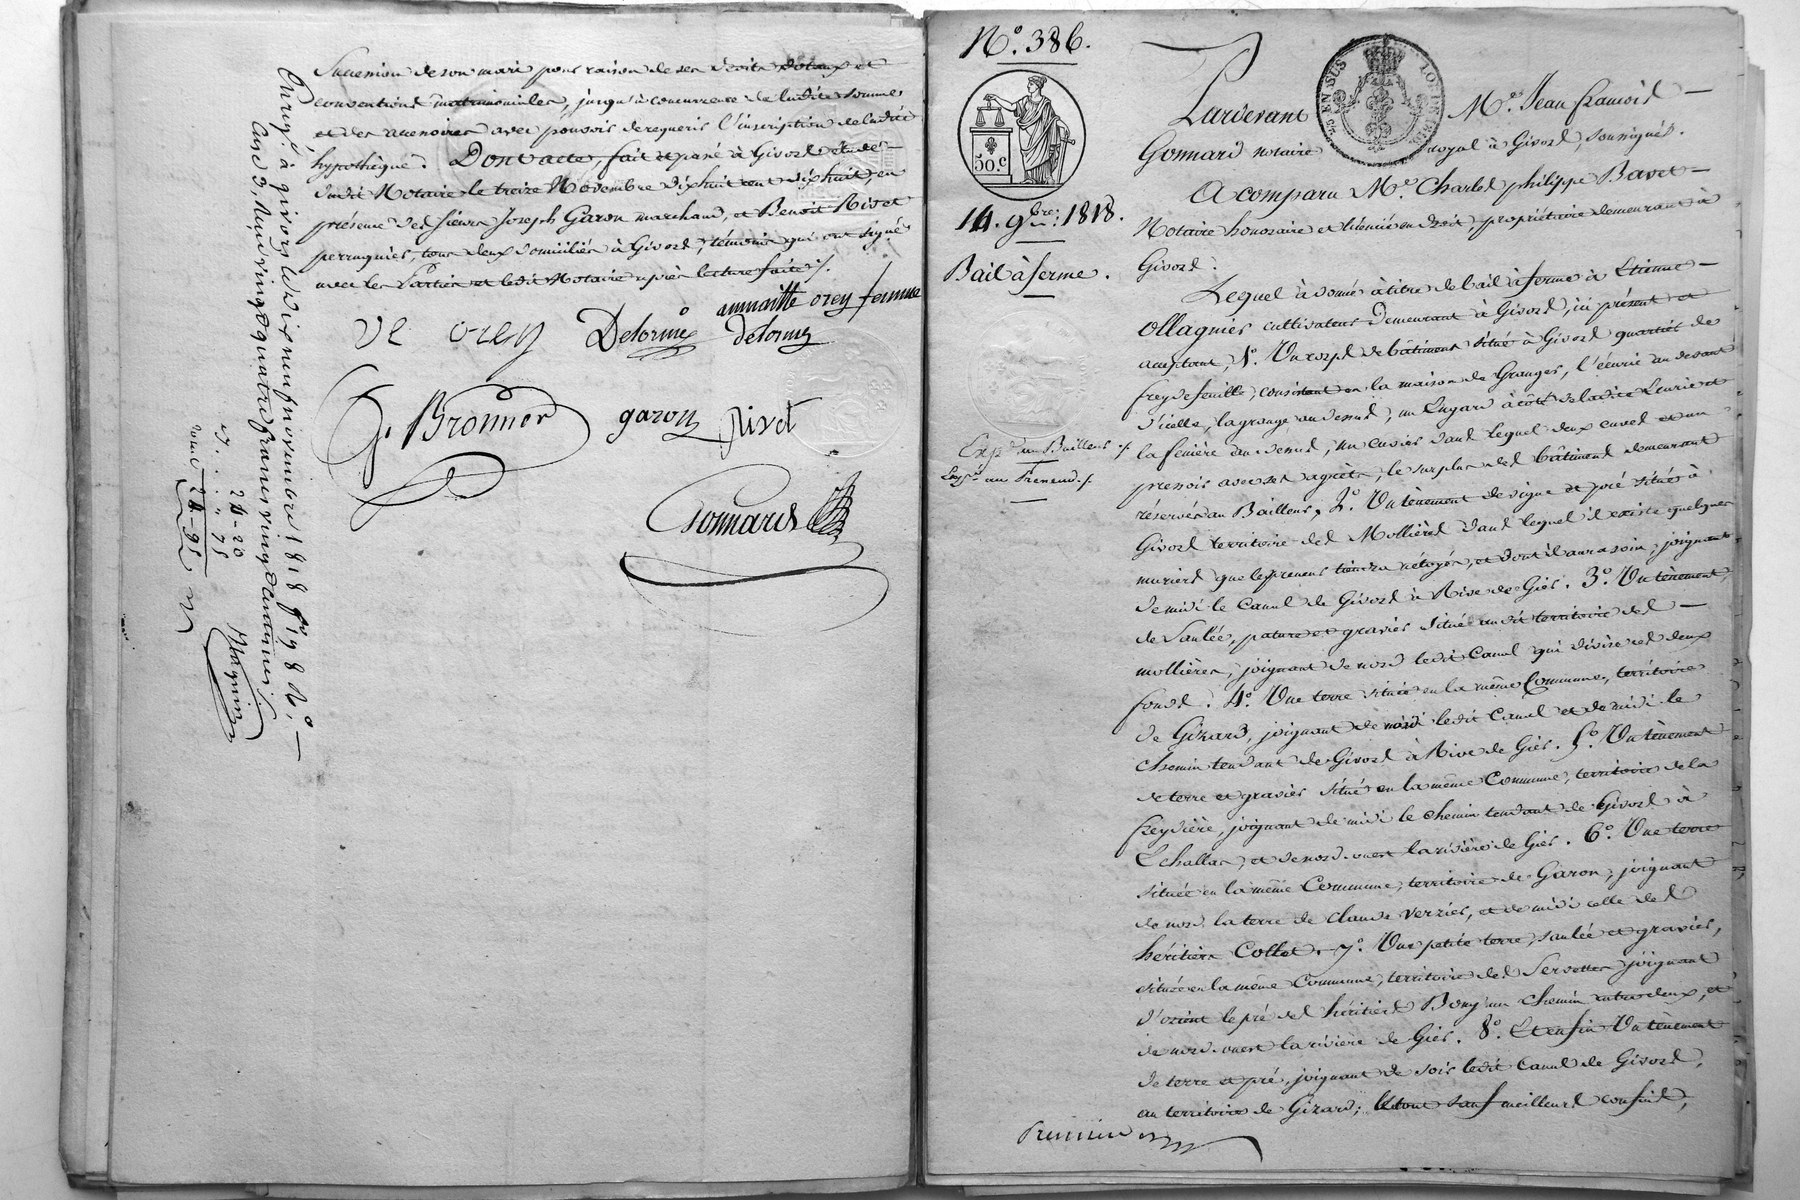 Succession de son mari pour raison de ses droits dotaux et
conventions matrimoniales, jusqu'à concurrence de ladite somme
et des accessoires avec pouvoir de requérir l'inscription de ladite
hypothèque. Dont acte, fait et passé à Givors étude
dudit Notaire le treize Novembre dix huit cent dix huit, en
présence des sieurs Joseph Garon marchand, et Benoit Rivet
perruquier, tous deux domiciliés à Givors, témoins qui ont signé
avec les Parties et ledit Notaire après lecture faite /.
annaitte orey femme
ve orey Delorme delorme
Bronner garon Rivet
Gonnard
Enrgé à givors le dix neuf novembre 1818 fo 198 Ro
vingt quatre francs vingt centimes
24-20
75
24-95
N.o 386.
50.c
14. 9bre 1818.
Bail à ferme.
Exp. au Bailleur /.
Exp. au Preneur /.
EN SUS
Pardevant Me. Jean françois
Gonnard notaire royal à Givors, soussignés.
A comparu Me. Charles philippe Bavet
Notaire honoraire et licencié en droit, propriétaire demeurant à
Givors.
Lequel a donné à titre de bail à ferme à Etienne
Ollagnier cultivateur demeurant à Givors, ici présent et
acceptant, 1.o Un corps de bâtiment situé à Givors quartier de
freydefeuille, consistant en la maison de Granger, l'écurie au devant
d'icelle, la grange au dessus, un hugard à côté de ladite Ecurie et
la fenière au dessus, un cuvier dans lequel deux cuves et un
pressoir avec ses agrêts, le surplus des bâtiments demeurant
réservés au Bailleur, 2.o Un tènement de vigne et pré situés à
Givors territoire des Mollières dans lequel il existe quelques
muriers que le preneur tiendra nétoyés, et dont il aura soin, joignant
de midi le Canal de Givors à Rive de Gier. 3.o Un tènement,
de Saulée, pature et gravier situé audit territoire des
mollières, joignant de nord ledit Canal qui divise ces deux
fonds. 4.o Une terre située en la même Commune, territoire
de Gizard, joignant de nord ledit Canal et de midi le
chemin tendant de Givors à Rive de Gier. 5.o Un tènement
de terre et gravier situé en la même Commune, territoire de la
freydière, joignant de midi le chemin tendant de Givors à
Echallas, et de nord-ouest la rivière de Gier. 6.o Une terre
située en la même Commune, territoire de Garon, joignant
de nord la terre de claude Verzier, et de midi celle des
héritiers Collet. 7.o Une petite terre, saulée et gravier,
située en la même Commune, territoire des Servettes joignant
d'orient le pré des héritiers Bony un chemin entre deux, et
de nord-ouest la rivière de Gier. 8.o Et enfin Un tènement
de terre et pré, joignant de soir ledit Canal de Givors,
au territoire de Gizard; le tout sauf meilleurs confins,
Premier